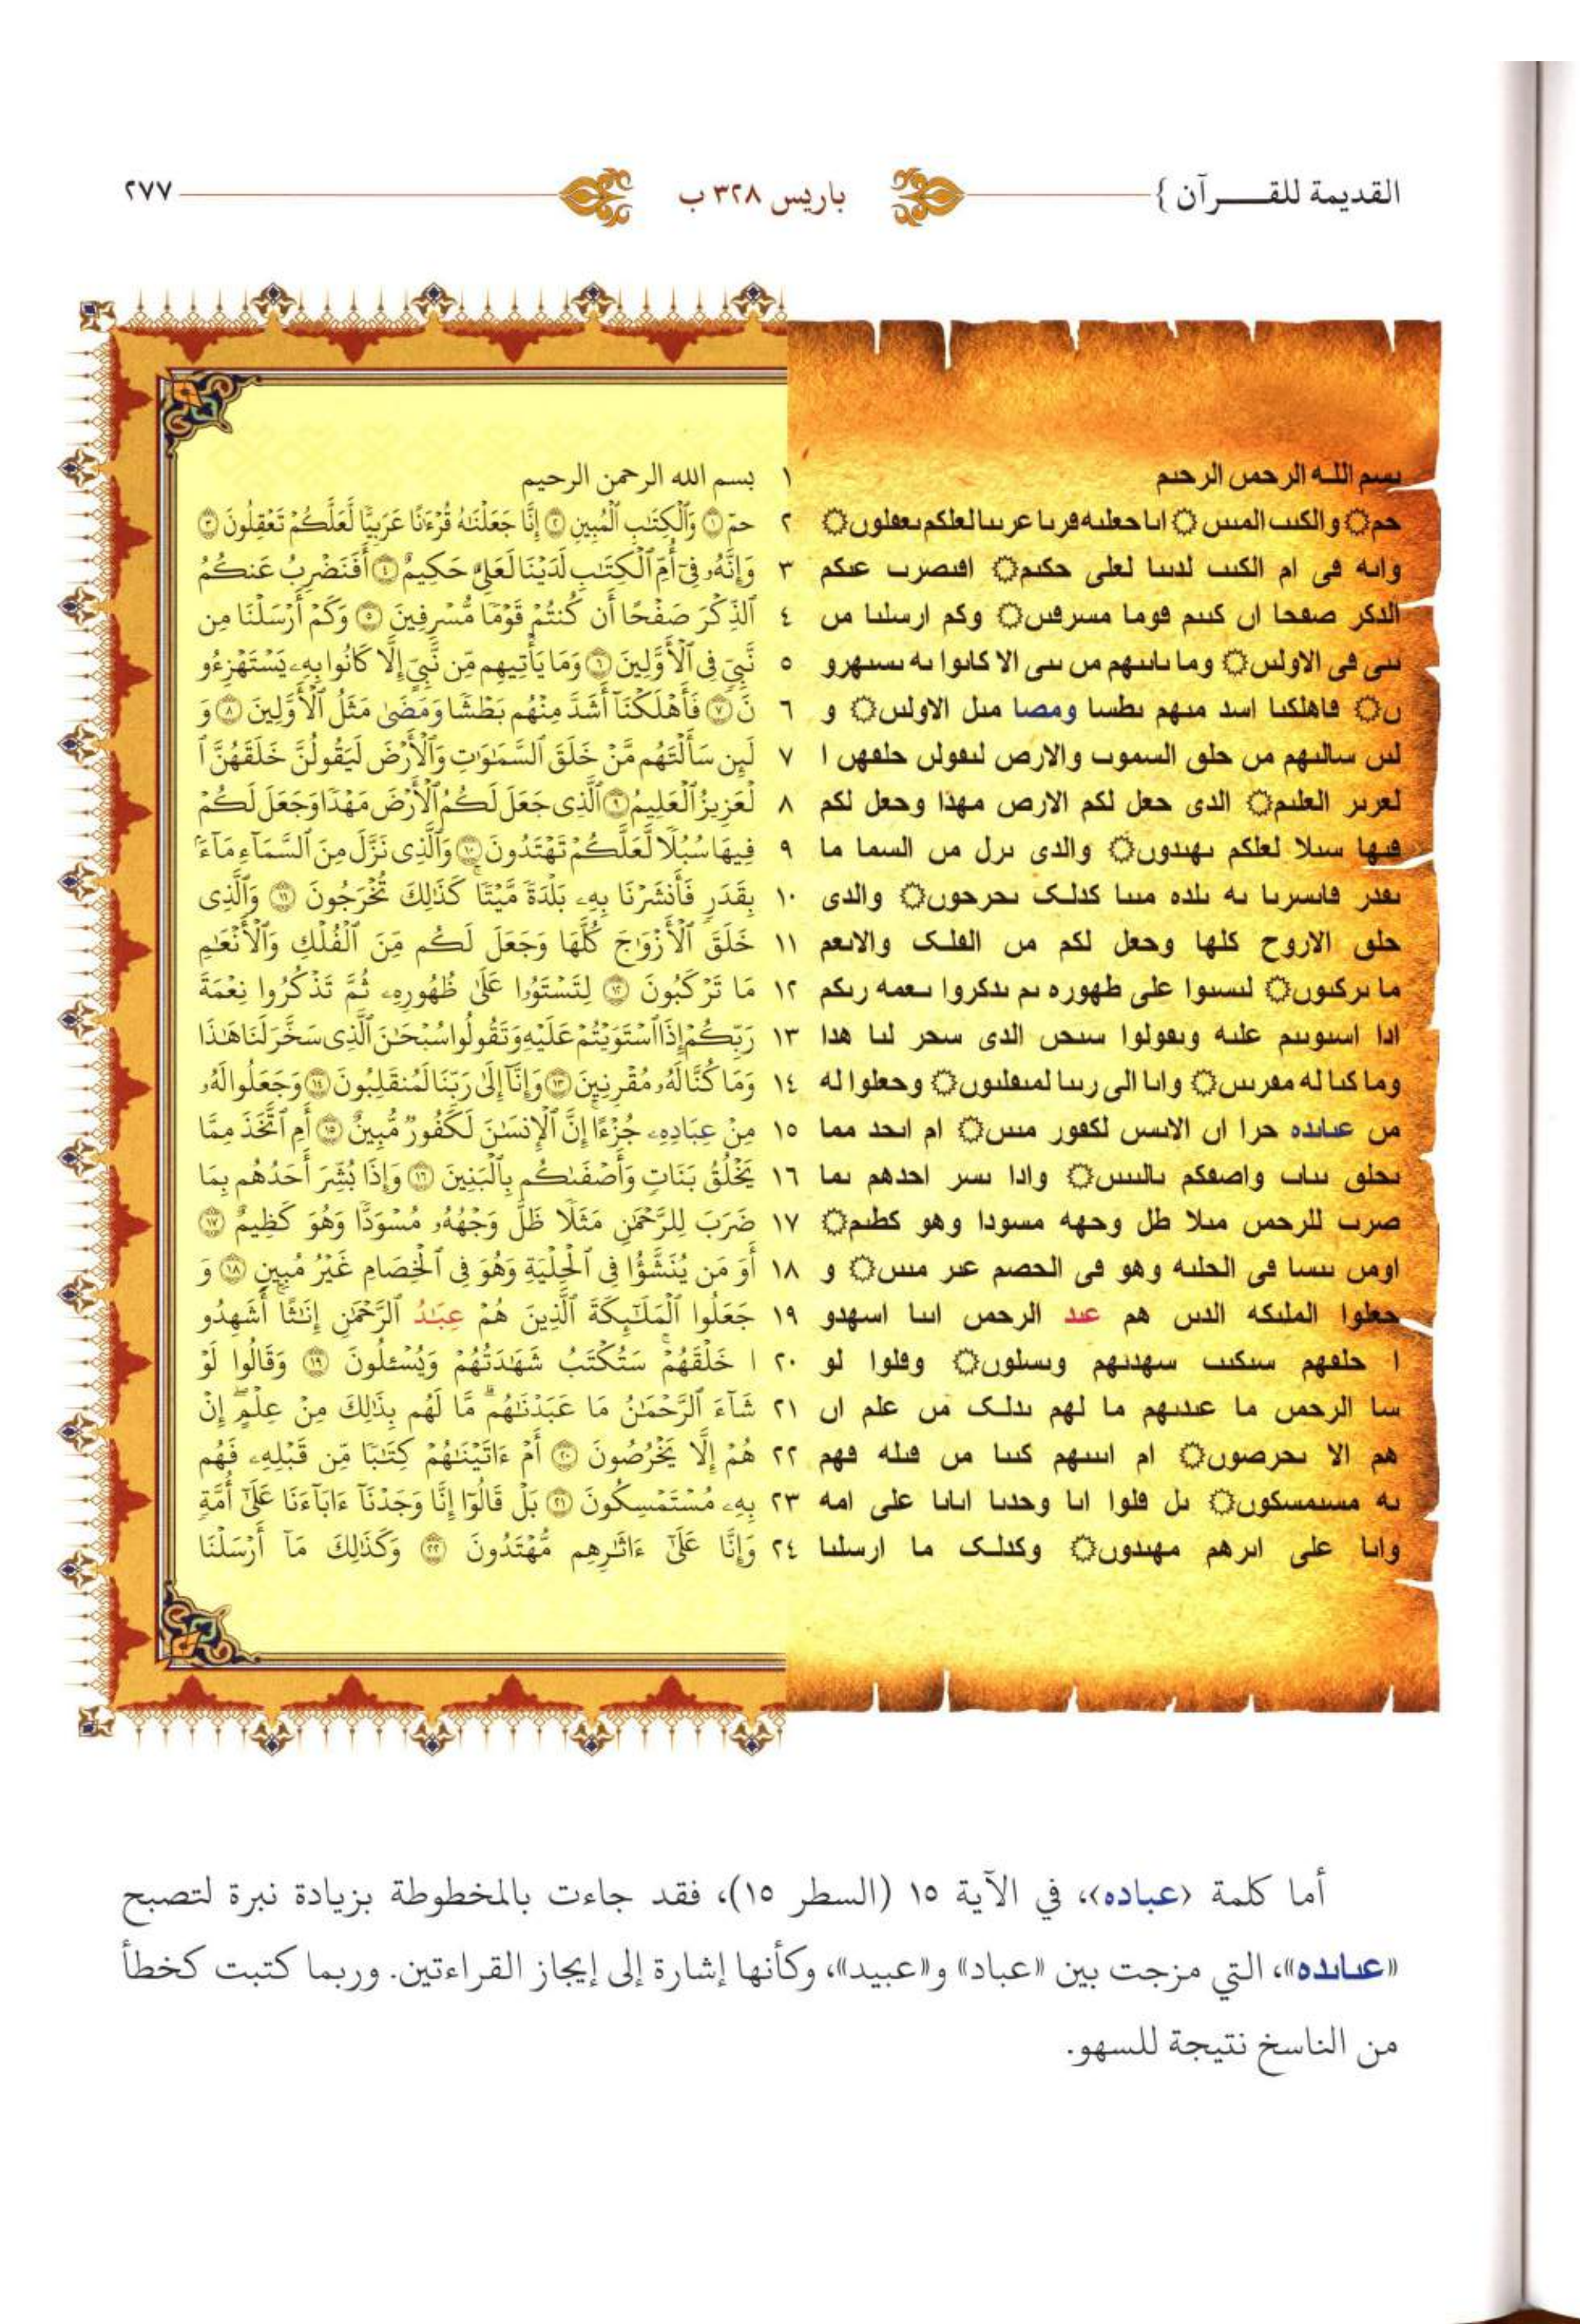 القديمة للقـــرآن }
باريس ٣٢٨ ب
٢٧٧
ٮسم اللـه الرحمں الرحٮم
حم۝ والكٮٮ المٮٮں ۝ اٮا حعلٮه ٯرٮا عرٮٮا لعلكم ٮعٯلوں۝
واٮه ڡى ام الكٮٮ لدٮٮا لعلى حكٮم۝ اڡٮصرٮ عٮكم
الدكر صڡحا اں كٮٮم ٯوما مسرڡٮں۝ وكم ارسلٮا مں
ٮٮى ڡى الاولٮں۝ وما ٮاٮٮهم مں ٮٮى الا كاٮوا ٮه ٮسٮهرو
ں۝ ڡاهلكٮا اسد مٮهم ٮطسا ومصا مٮل الاولٮں۝ و
لٮں سالٮهم مں حلٯ السموٮ والارص لٮٯولں حلٯهں ا
لعرٮر العلٮم۝ الدى حعل لكم الارص مهدا وحعل لكم
ڡٮها سٮلا لعلكم ٮهٮدوں۝ والدى ٮرل مں السما ما
ٮٯدر ڡاٮسرٮا ٮه ٮلده مٮٮا كدلک ٮحرحوں۝ والدى
حلٯ الاروح كلها وحعل لكم مں الڡلک والاٮعم
ما ٮركٮوں۝ لٮسٮوا على طهوره ٮم ٮدكروا ٮعمه رٮكم
ادا اسٮوٮٮم علٮه وٮٯولوا سٮحں الدى سحر لٮا هدا
وما كٮا له مٯرٮٮں۝ واٮا الى رٮٮا لمٮٯلٮوں۝ وحعلوا له
مں عٮاٮده حرا اں الاٮسں لكڡور مٮٮں۝ ام اٮحد مما
ٮحلٯ ٮٮاٮ واصڡكم ٮالٮٮٮں۝ وادا ٮسر احدهم ٮما
صرٮ للرحمں مٮلا طل وحهه مسودا وهو كطٮم۝
اومں ٮٮسا ڡى الحلٮه وهو ڡى الحصم عٮر مٮٮں۝ و
حعلوا الملٮكه الدٮں هم عٮد الرحمں اٮٮا اسهدو
ا حلٯهم سٮكٮٮ سهدٮهم وٮسلوں۝ وٯلوا لو
سا الرحمں ما عٮدٮهم ما لهم ٮدلک مں علم اں
هم الا ٮحرصوں۝ ام اٮٮٮهم كٮٮا مں ٯٮله ڡهم
ٮه مسٮمسكوں۝ ٮل ٯلوا اٮا وحدٮا اٮاٮا على امه
واٮا على اٮرهم مهٮدوں۝ وكدلک ما ارسلٮا
١ بسم الله الرحمن الرحيم
٢ حمٓ ۝١ وَٱلْكِتَٰبِ ٱلْمُبِينِ ۝٢ إِنَّا جَعَلْنَٰهُ قُرْءَٰنًا عَرَبِيًّا لَّعَلَّكُمْ تَعْقِلُونَ ۝٣
٣ وَإِنَّهُۥ فِىٓ أُمِّ ٱلْكِتَٰبِ لَدَيْنَا لَعَلِىٌّ حَكِيمٌ ۝٤ أَفَنَضْرِبُ عَنكُمُ
٤ ٱلذِّكْرَ صَفْحًا أَن كُنتُمْ قَوْمًا مُّسْرِفِينَ ۝٥ وَكَمْ أَرْسَلْنَا مِن
٥ نَّبِىٍّ فِى ٱلْأَوَّلِينَ ۝٦ وَمَا يَأْتِيهِم مِّن نَّبِىٍّ إِلَّا كَانُوا۟ بِهِۦ يَسْتَهْزِءُو
٦ نَ ۝٧ فَأَهْلَكْنَآ أَشَدَّ مِنْهُم بَطْشًا وَمَضَىٰ مَثَلُ ٱلْأَوَّلِينَ ۝٨ وَ
٧ لَئِن سَأَلْتَهُم مَّنْ خَلَقَ ٱلسَّمَٰوَٰتِ وَٱلْأَرْضَ لَيَقُولُنَّ خَلَقَهُنَّ ٱ
٨ لْعَزِيزُ ٱلْعَلِيمُ ۝٩ ٱلَّذِى جَعَلَ لَكُمُ ٱلْأَرْضَ مَهْدًا وَجَعَلَ لَكُمْ
٩ فِيهَا سُبُلًا لَّعَلَّكُمْ تَهْتَدُونَ ۝١٠ وَٱلَّذِى نَزَّلَ مِنَ ٱلسَّمَآءِ مَآءًۢ
١٠ بِقَدَرٍ فَأَنشَرْنَا بِهِۦ بَلْدَةً مَّيْتًا ۚ كَذَٰلِكَ تُخْرَجُونَ ۝١١ وَٱلَّذِى
١١ خَلَقَ ٱلْأَزْوَٰجَ كُلَّهَا وَجَعَلَ لَكُم مِّنَ ٱلْفُلْكِ وَٱلْأَنْعَٰمِ
١٢ مَا تَرْكَبُونَ ۝١٢ لِتَسْتَوُۥا۟ عَلَىٰ ظُهُورِهِۦ ثُمَّ تَذْكُرُوا۟ نِعْمَةَ
١٣ رَبِّكُمْ إِذَا ٱسْتَوَيْتُمْ عَلَيْهِ وَتَقُولُوا۟ سُبْحَٰنَ ٱلَّذِى سَخَّرَ لَنَا هَٰذَا
١٤ وَمَا كُنَّا لَهُۥ مُقْرِنِينَ ۝١٣ وَإِنَّآ إِلَىٰ رَبِّنَا لَمُنقَلِبُونَ ۝١٤ وَجَعَلُوا۟ لَهُۥ
١٥ مِنْ عِبَادِهِۦ جُزْءًا ۚ إِنَّ ٱلْإِنسَٰنَ لَكَفُورٌ مُّبِينٌ ۝١٥ أَمِ ٱتَّخَذَ مِمَّا
١٦ يَخْلُقُ بَنَاتٍ وَأَصْفَىٰكُم بِٱلْبَنِينَ ۝١٦ وَإِذَا بُشِّرَ أَحَدُهُم بِمَا
١٧ ضَرَبَ لِلرَّحْمَٰنِ مَثَلًا ظَلَّ وَجْهُهُۥ مُسْوَدًّا وَهُوَ كَظِيمٌ ۝١٧
١٨ أَوَمَن يُنَشَّؤُا۟ فِى ٱلْحِلْيَةِ وَهُوَ فِى ٱلْخِصَامِ غَيْرُ مُبِينٍ ۝١٨ وَ
١٩ جَعَلُوا۟ ٱلْمَلَٰٓئِكَةَ ٱلَّذِينَ هُمْ عِبَٰدُ ٱلرَّحْمَٰنِ إِنَٰثًا ۚ أَشَهِدُو
٢٠ ا خَلْقَهُمْ ۚ سَتُكْتَبُ شَهَٰدَتُهُمْ وَيُسْـَٔلُونَ ۝١٩ وَقَالُوا۟ لَوْ
٢١ شَآءَ ٱلرَّحْمَٰنُ مَا عَبَدْنَٰهُم ۗ مَّا لَهُم بِذَٰلِكَ مِنْ عِلْمٍ ۖ إِنْ
٢٢ هُمْ إِلَّا يَخْرُصُونَ ۝٢٠ أَمْ ءَاتَيْنَٰهُمْ كِتَٰبًا مِّن قَبْلِهِۦ فَهُم
٢٣ بِهِۦ مُسْتَمْسِكُونَ ۝٢١ بَلْ قَالُوٓا۟ إِنَّا وَجَدْنَآ ءَابَآءَنَا عَلَىٰٓ أُمَّةٍ
٢٤ وَإِنَّا عَلَىٰٓ ءَاثَٰرِهِم مُّهْتَدُونَ ۝٢٢ وَكَذَٰلِكَ مَآ أَرْسَلْنَا
أما كلمة ‹عباده›، في الآية ١٥ (السطر ١٥)، فقد جاءت بالمخطوطة بزيادة نبرة لتصبح
«عٮاٮده»، التي مزجت بين «عباد» و«عبيد»، وكأنها إشارة إلى إيجاز القراءتين. وربما كتبت كخطأ
من الناسخ نتيجة للسهو.